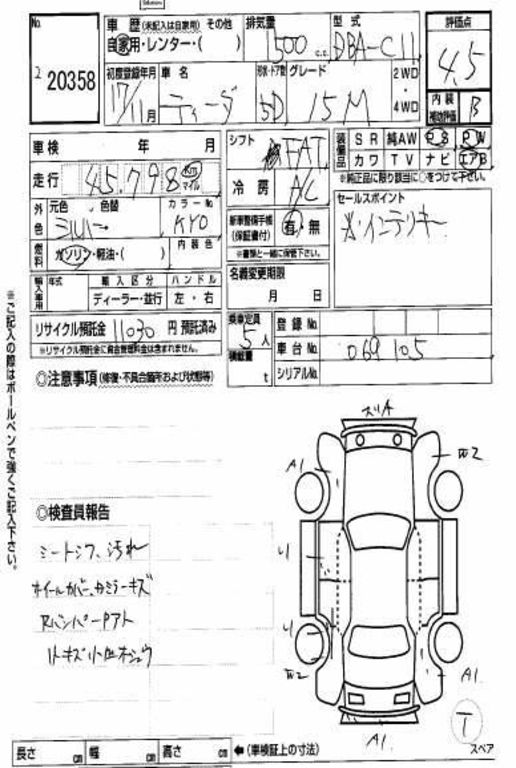 No.
20358
車歴 (未記入は自家用) その他
自家用・レンター・( )
排気量
1500 c.c.
型式
DBA-C11
評価点
4.5
初度登録年月
17/11月
車名
ティーダ
形状・ドア数
5D
グレード
15M
2WD
・
4WD
内装
補助評価
B
車検 年 月
走行 45,798 km マイル
外色
元色 色替
シルバー
カラーNo
KYO
燃料
ガソリン・軽油・( )
内装色
輸入車用
年式
輸入区分
ディーラー・並行
ハンドル
左・右
リサイクル預託金 11030 円 預託済み
※リサイクル預託金に資金管理料金は含まれません。
シフト
FAT
冷房
A/C
新車整備手帳
(保証書付)
有・無
※書類と一緒に保管下さい。
名義変更期限
月 日
乗車定員
5人
積載量
t
装備品
SR 純AW PS PW
カワ TV ナビ エアB
※純正品に限り該当に○をつけて下さい。
セールスポイント
インテリキー
登録No.
車台No. 069105
シリアルNo.
◎注意事項 (修復・不具合箇所および状態等)
◎検査員報告
シートシワ、汚れ
ホイールカバー、ミラーキズ
Rバンパーアト
A1
W2
A1.
W2
A1.
T
スペア
長さ cm 幅 cm 高さ cm ←(車検証上の寸法)
※ご記入の際はボールペンで強くご記入下さい。